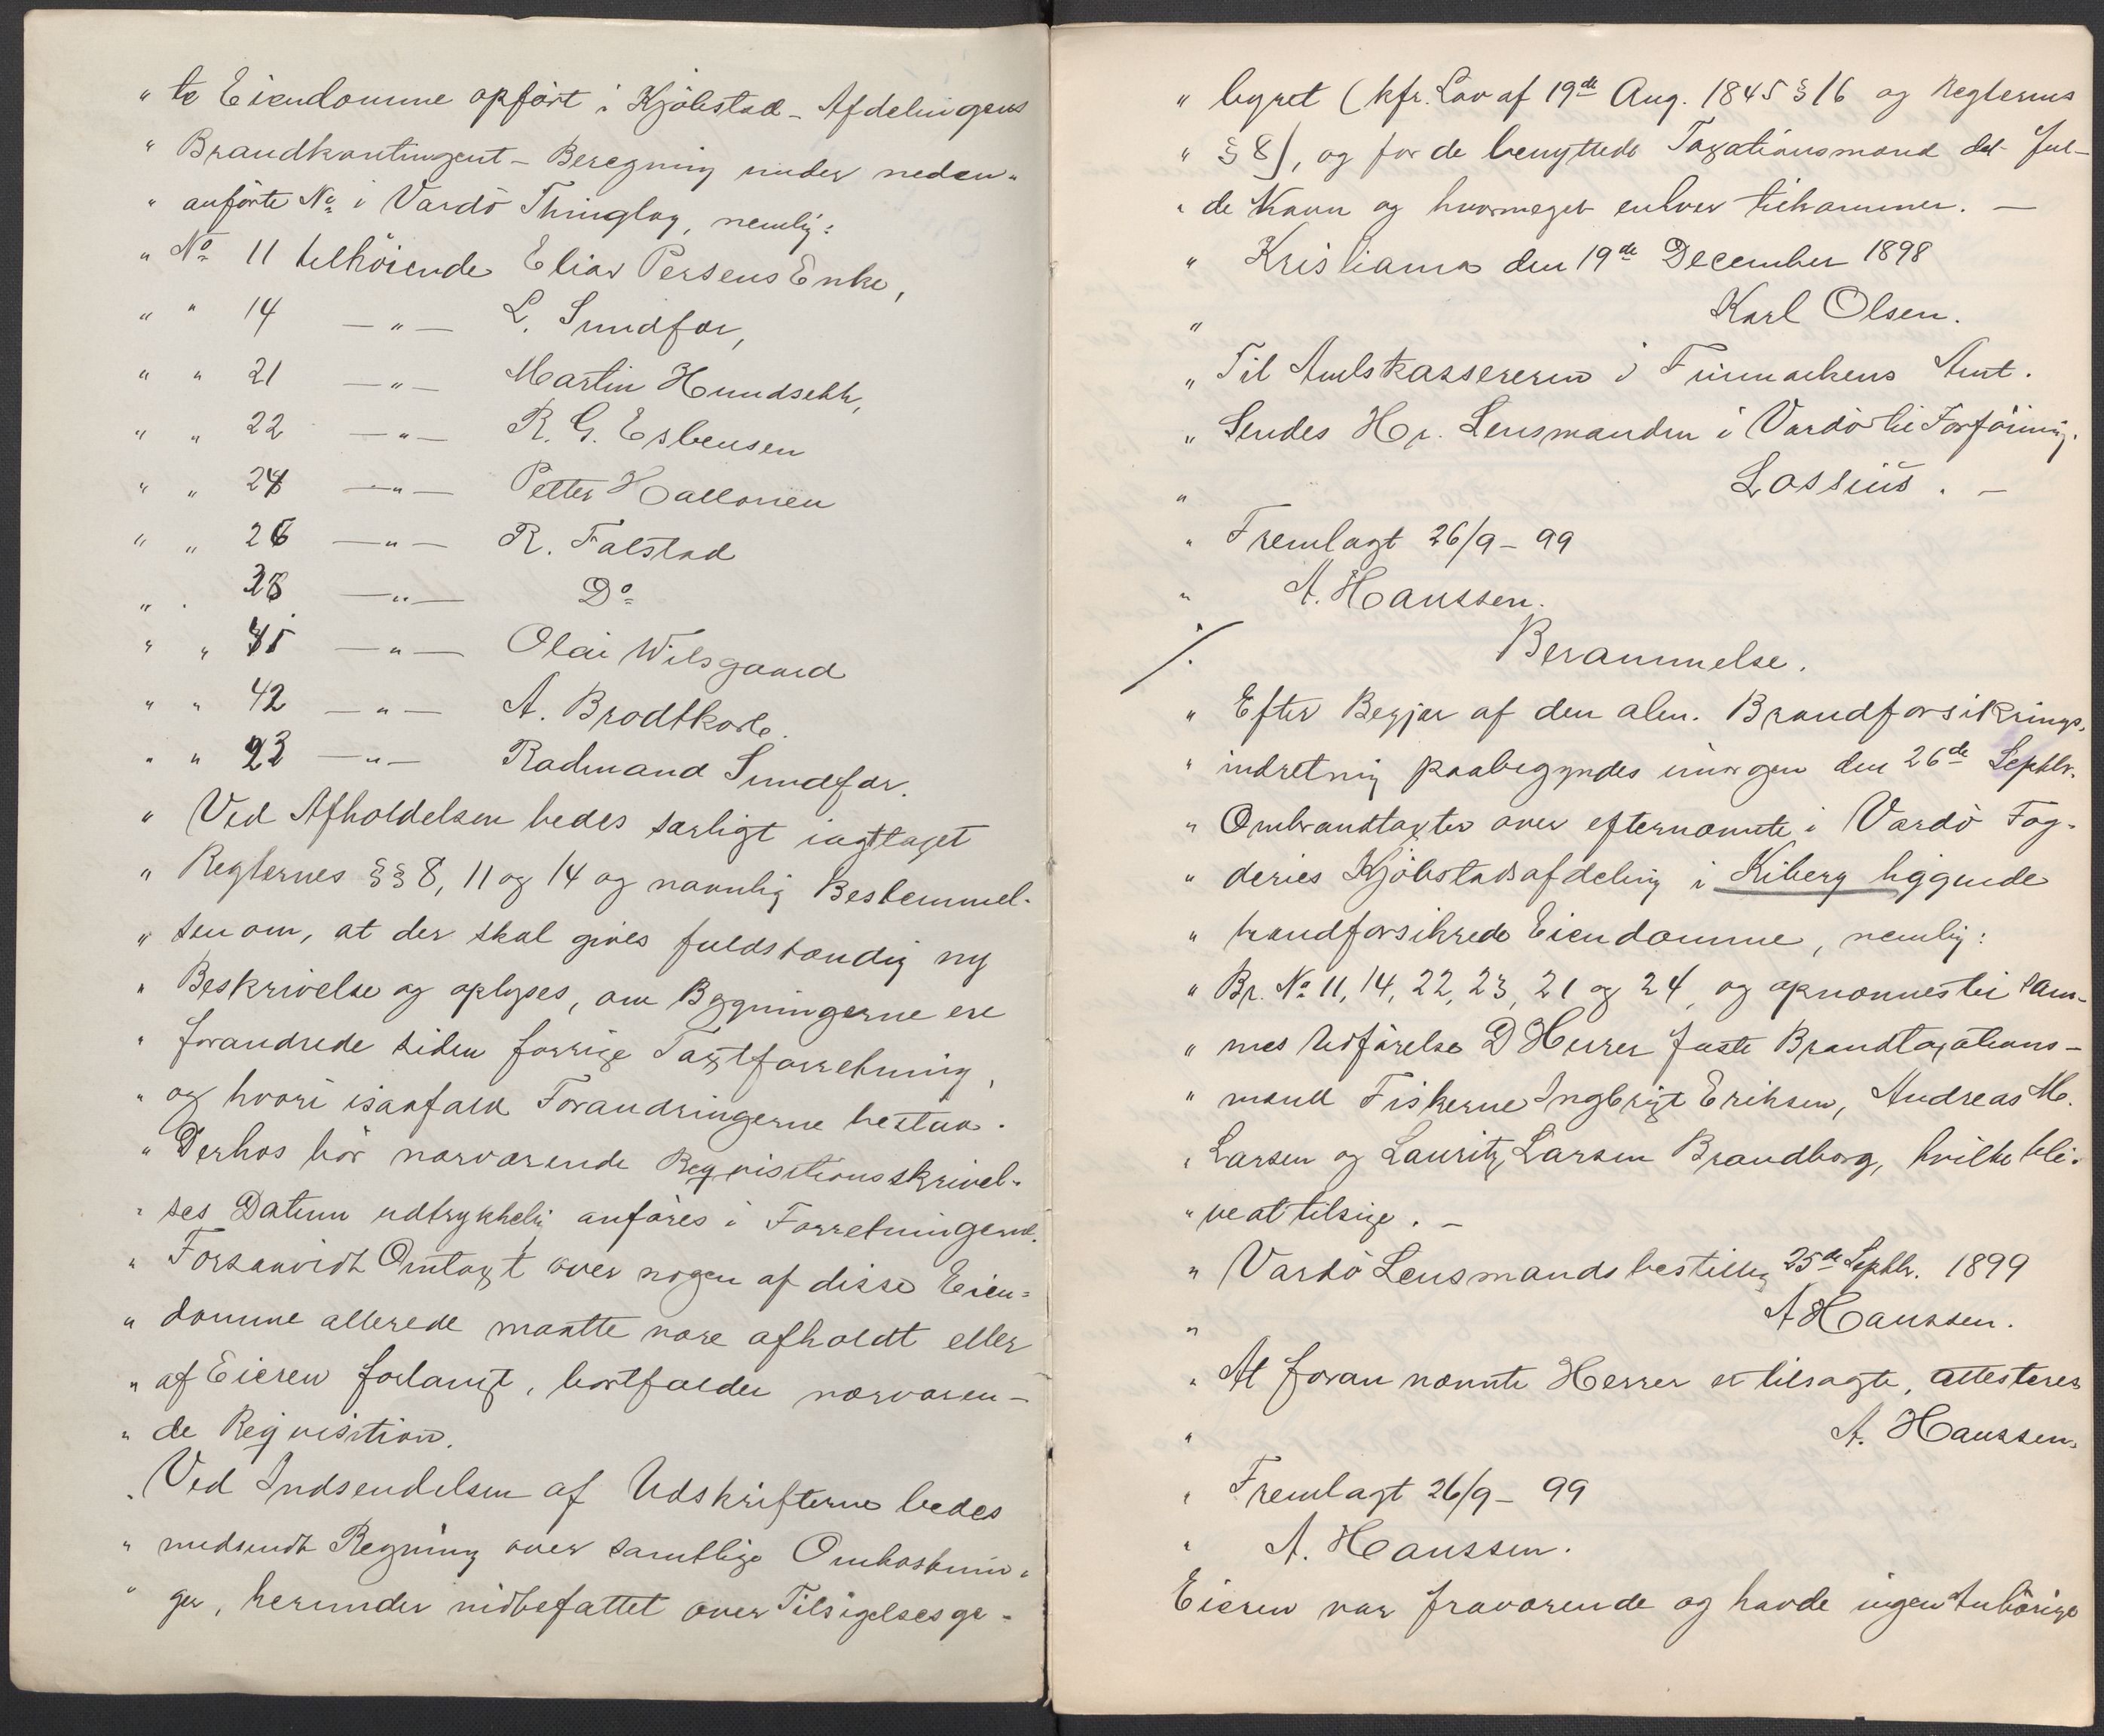 " te Eiendomme opført i Kjøbstad-Afdelingens
" Brandkontingent-Beregning under neden-
" anførte No i Vardø Thinglag, nemlig:
" No 11 tilhørende Elias Persens Enke,
" " 14 —"— L. Sundfør,
" " 21 —"— Martin Hundseth,
" " 22 —"— R. G. Esbensen
" " 24 —"— Petter Hallonen
" " 26 —"— R. Falstad
" " 28 —"— Do
" " 41 —"— Olai Wilsgaard
" " 42 —"— A. Brodtkorb.
" " 23 —"— Radmand Sundfør.
" Ved Afholdelsen bedes særligt iagttaget
" Reglernes §§ 8, 11 og 14 og navnlig Bestemmel-
" sen om, at der skal gives fuldstændig ny
" Beskrivelse og oplyses, om Bygningerne ere
" forandrede siden forrige Taxtforretning,
" og hvori isaafald Forandringerne bestaa.
" Derhos bør nærværende Reqvisitionsskrivel-
" ses Datum udtrykkelig anføres i Forretningerne.
" Forsaavidt Omtaxt over nogen af disse Eien-
" domme allerede maatte være afholdt eller
" af Eieren forlangt, bortfalder nærværen-
" de Reqvisition.
" Ved Indsendelsen af Udskrifterne bedes
" medsendt Regning over samtlige Omkostnin-
" ger, herunder indbefattet over Tilsigelsesge-
" byret (kfr. Lov af 19de Aug. 1845 § 16 og Reglernes
" § 8), og for de benyttede Taxationsmænd det ful-
" de Navn og hvormeget enhver tilkommer. —
" Kristiania den 19de December 1898
" Karl Olsen.
" Til Amtskassereren i Finmarkens Amt.
" Sendes Hr. Lensmanden i Vardø til Forføining.
" Lossius. —
" Fremlagt 26/9 - 99
" A. Hanssen.
./. Berammelse.
" Efter Begjær af den alm. Brandforsikrings-
" indretnig paabegyndes imorgen den 26de Septbr.
" Ombrandtaxter over efternævnte i Vardø Fog-
" deries Kjøbstadsafdeling i Kiberg liggende
" brandforsikrede Eiendomme, nemlig:
" Br. No 11, 14, 22, 23, 21 og 24, og opnævnes til sam-
" mes Udførelse D'Herrer faste Brandtaxations-
" mænd Fiskerne Ingbrigt Eriksen, Andreas M.
" Larsen og Lauritz Larsen Brandborg, hvilke bli-
" ve at tilsige. —
" Vardø Lensmandsbestillig 25de Septbr. 1899
" A Hanssen.
" At foran nævnte Herrer er tilsagte, attesteres
" A. Hanssen.
" Fremlagt 26/9 - 99
" A. Hanssen.
Eieren var fraværende og havde ingen Anhørige